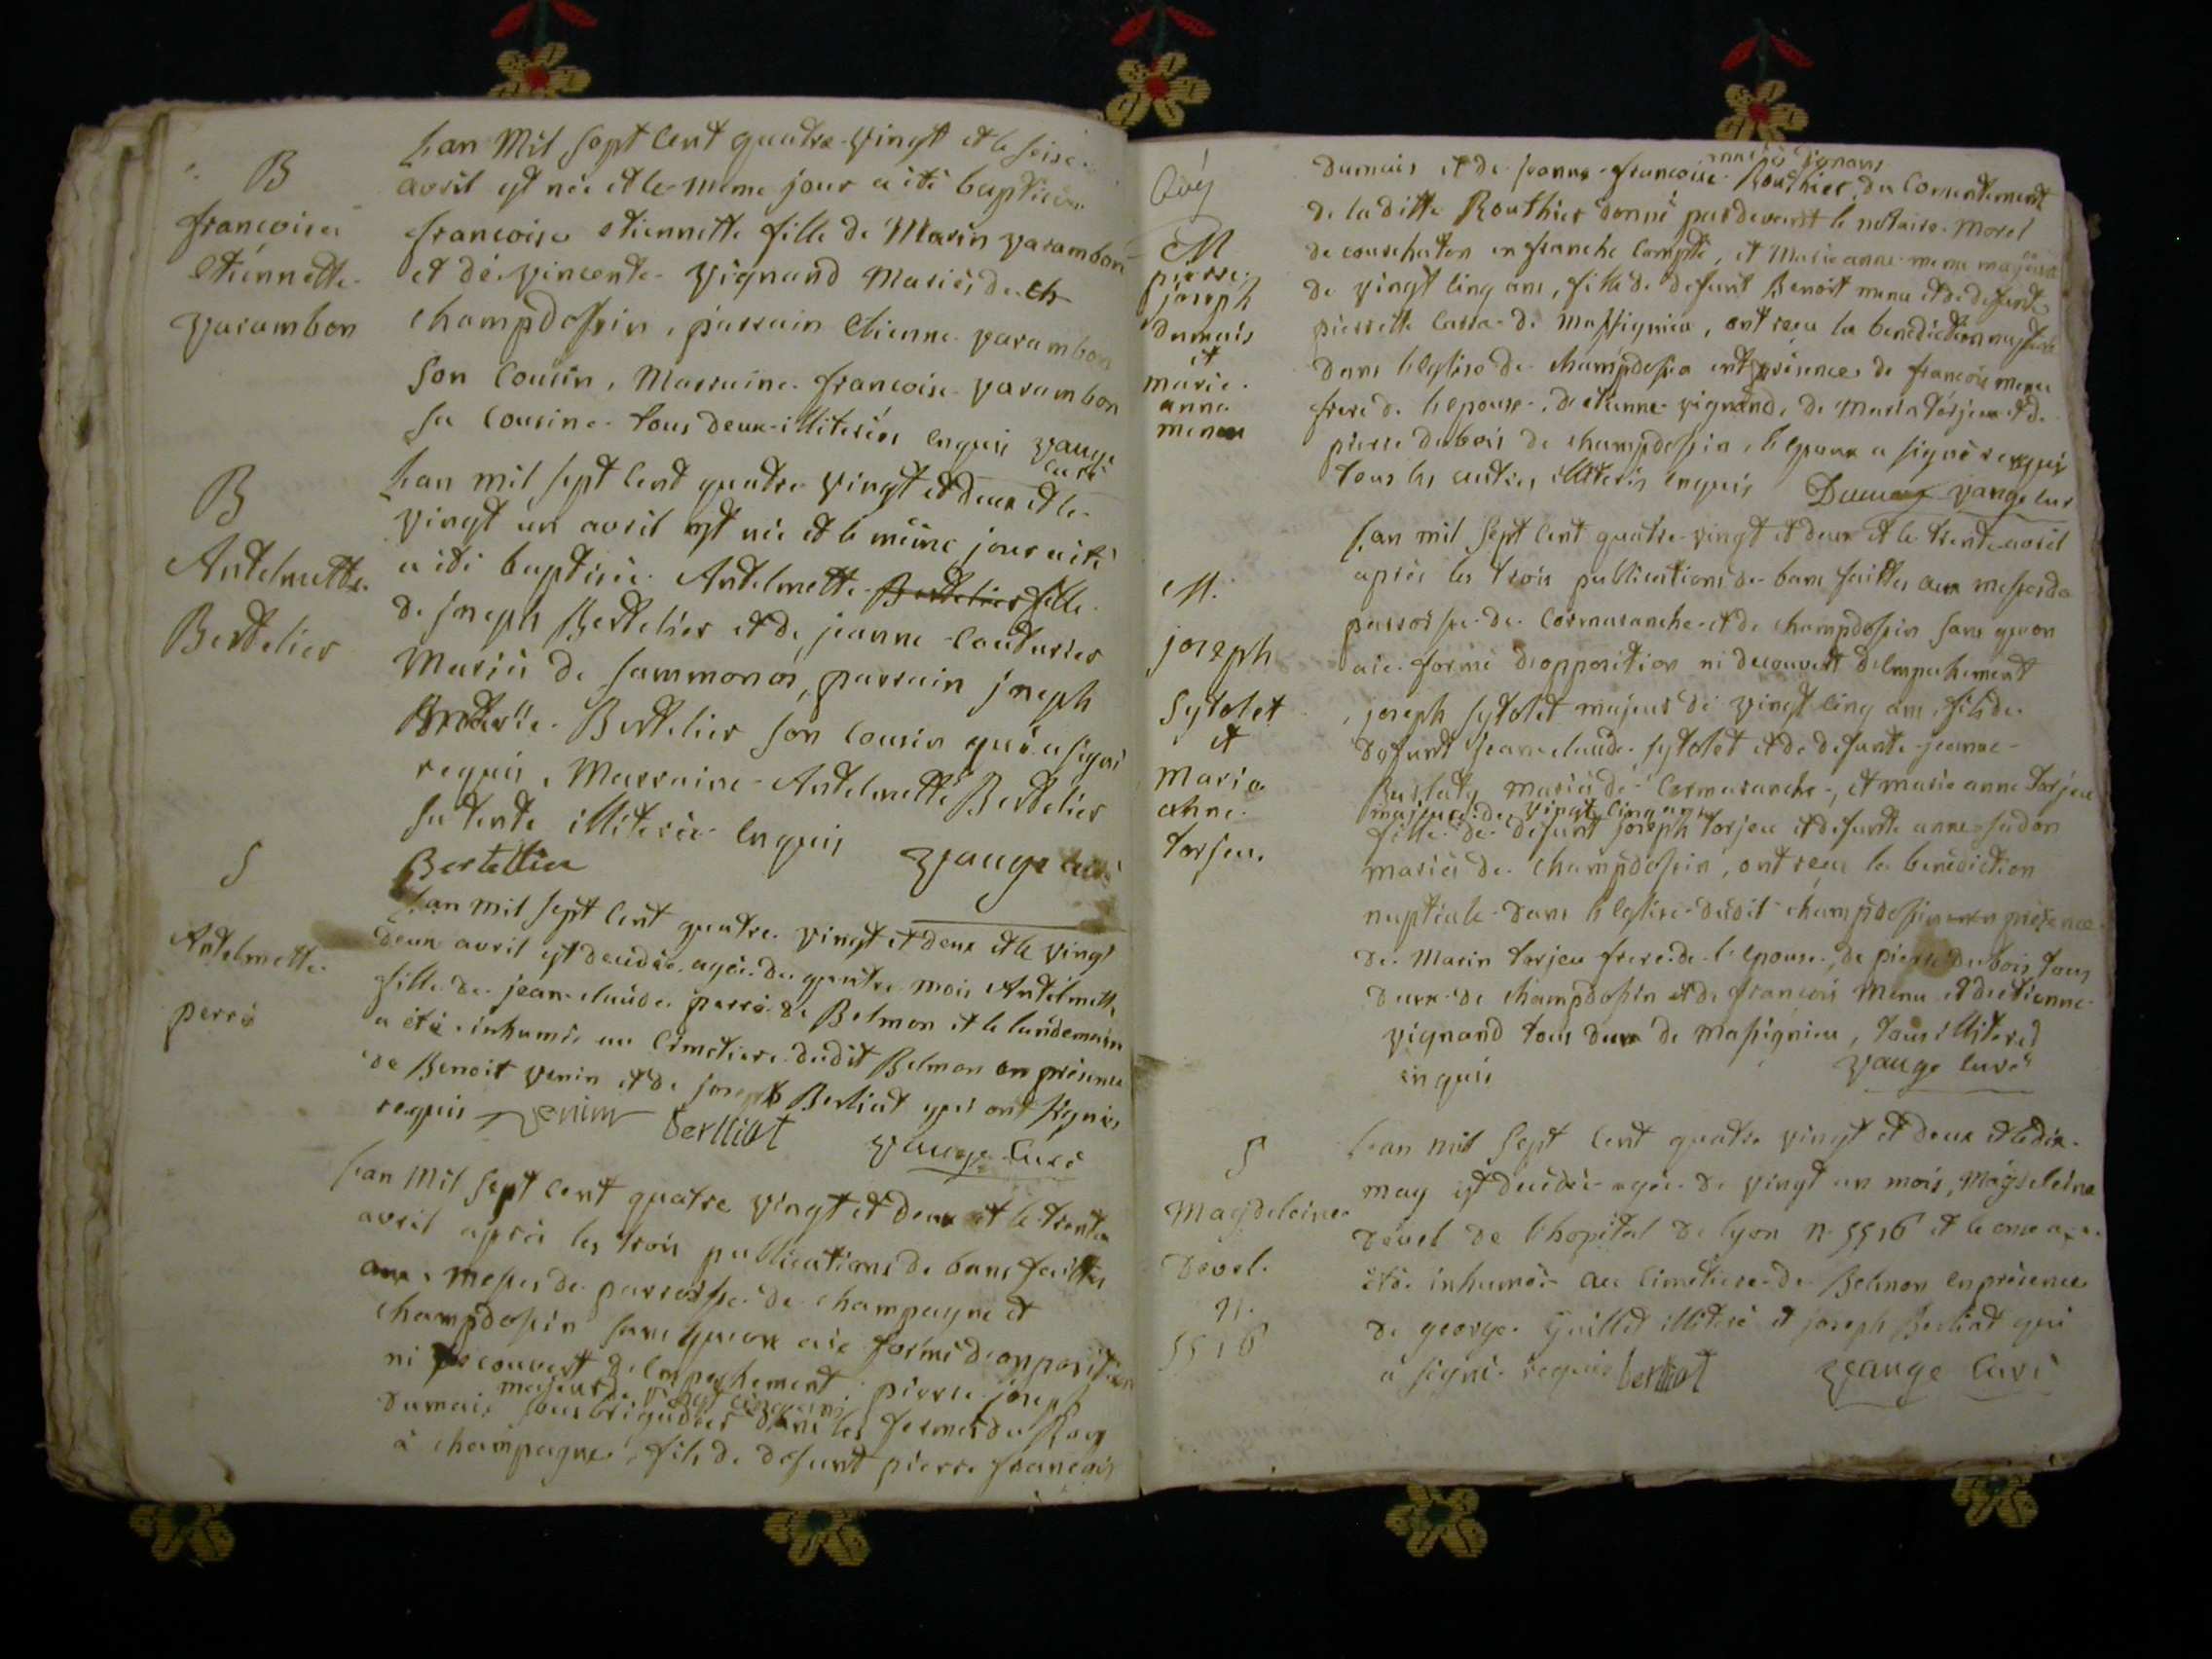 B
francoise
etiennette
varambon
Lan Mil Sept Cent quatre-vingt et le seise
avril est née et le meme jour a été baptisée
francoise etiennette fille de Marin varambon
et de vincente vignand Mariés de ch
champdossin, parrain etienne varambon
son Cousin, Marraine francoise varambon
sa Cousine tous deux illiterés enquis vauge
curé
B
Antelmette
Bertelier
Lan mil sept Cent quatre vingt et deux et le
vingt un avril est née et le même jour a été
a été baptisée Antelmette Bertelier fille
de joseph Bertelier et de jeanne Couturier
Mariés de Sammonos, parrain joseph
Bertelier son Cousin qui a signé
requis, Marraine Antelmette Bertelier
sa tente illiterée Enquis
Bertellier vauge curé
S
Antelmette
perré
Lan mil sept Cent quatre vingt et deux et le vingt
deux avril est decedée agée de quatre mois Antelmette
fille de jean claude perré de Belmon et le lendemain
a été inhumée au Cimetiere dudit Belmon en présence
de Benoit venin et de joseph Berliat qui ont signés
requis venin berlliat vauge Curé
Lan Mil Sept Cent quatre vingt et deux et le trente
avril après les trois publications de bans faittes
aux messes de parroisse de champagne et
champdossin sans quon aie formé doopposition
ni decouvert delmpechement, pierre joseph
majeur de vingt cinq ans
dumais sous brigadier dans les fermes du Roy
à champagne, fils de defunt pierre francois
M
pierre
joseph
dumais
et
marie
anne
menu
dumais et de jeanne francoise Routhier, du Consentement
de laditte Routhier donné pardevant le notaire Morel
de courchaton en franche Compté, et Marie anne menu majeure
de vingt cinq ans, fille de defunt Benoit menu et de defunte
pierrette Carra de Massignieu, ont recu la benediction nuptiale
dans leglise de champdossin en présence de francois menu
frere de lepouse, de etienne vignand, de Marin torjeu et de
pierre dubois de champdossin, lepoux a signé requis
tous les autres illiterés enquis Dumay vauge curé
M.
joseph
Sytolet
et
Marie
anne
torjeu
Lan mil Sept Cent quatre vingt et deux et le trente avril
après les trois publications de bans faittes aux messes de
parroisse de Cormaranche et de champdossin sans quon
aie formé doopposition ni decouvert delmpechement
, joseph Sytolet majeur de vingt cinq ans, fils de
defunt jean claude Sytolet et de defunte jeanne
mariés de Cormaranche, et marie anne torjeu
majeure de vingt cinq ans
fille de defunt joseph torjeu et defunte anne
mariés de champdossin, ont recu la benediction
nuptiale dans leglise dudit champdossin en présence
de Marin torjeu frere de lepouse, de pierre dubois, tous
deux de champdossin et de francois Menu et de etienne
vignand tous deux de massignieu, tous illiterés
enquis vauge curé
S
Magdeleine
Devel
n.
5516
Lan mil Sept Cent quatre vingt et deux et le dix
may est decedée agée de vingt un mois, Magdeleine
devel de lhopital de lyon n. 5516 et le onze a
été inhumée au Cimetiere de Belmon en présence
de george Guillet illiteré et joseph Berliat qui
a signé requis berlliat vauge Curé